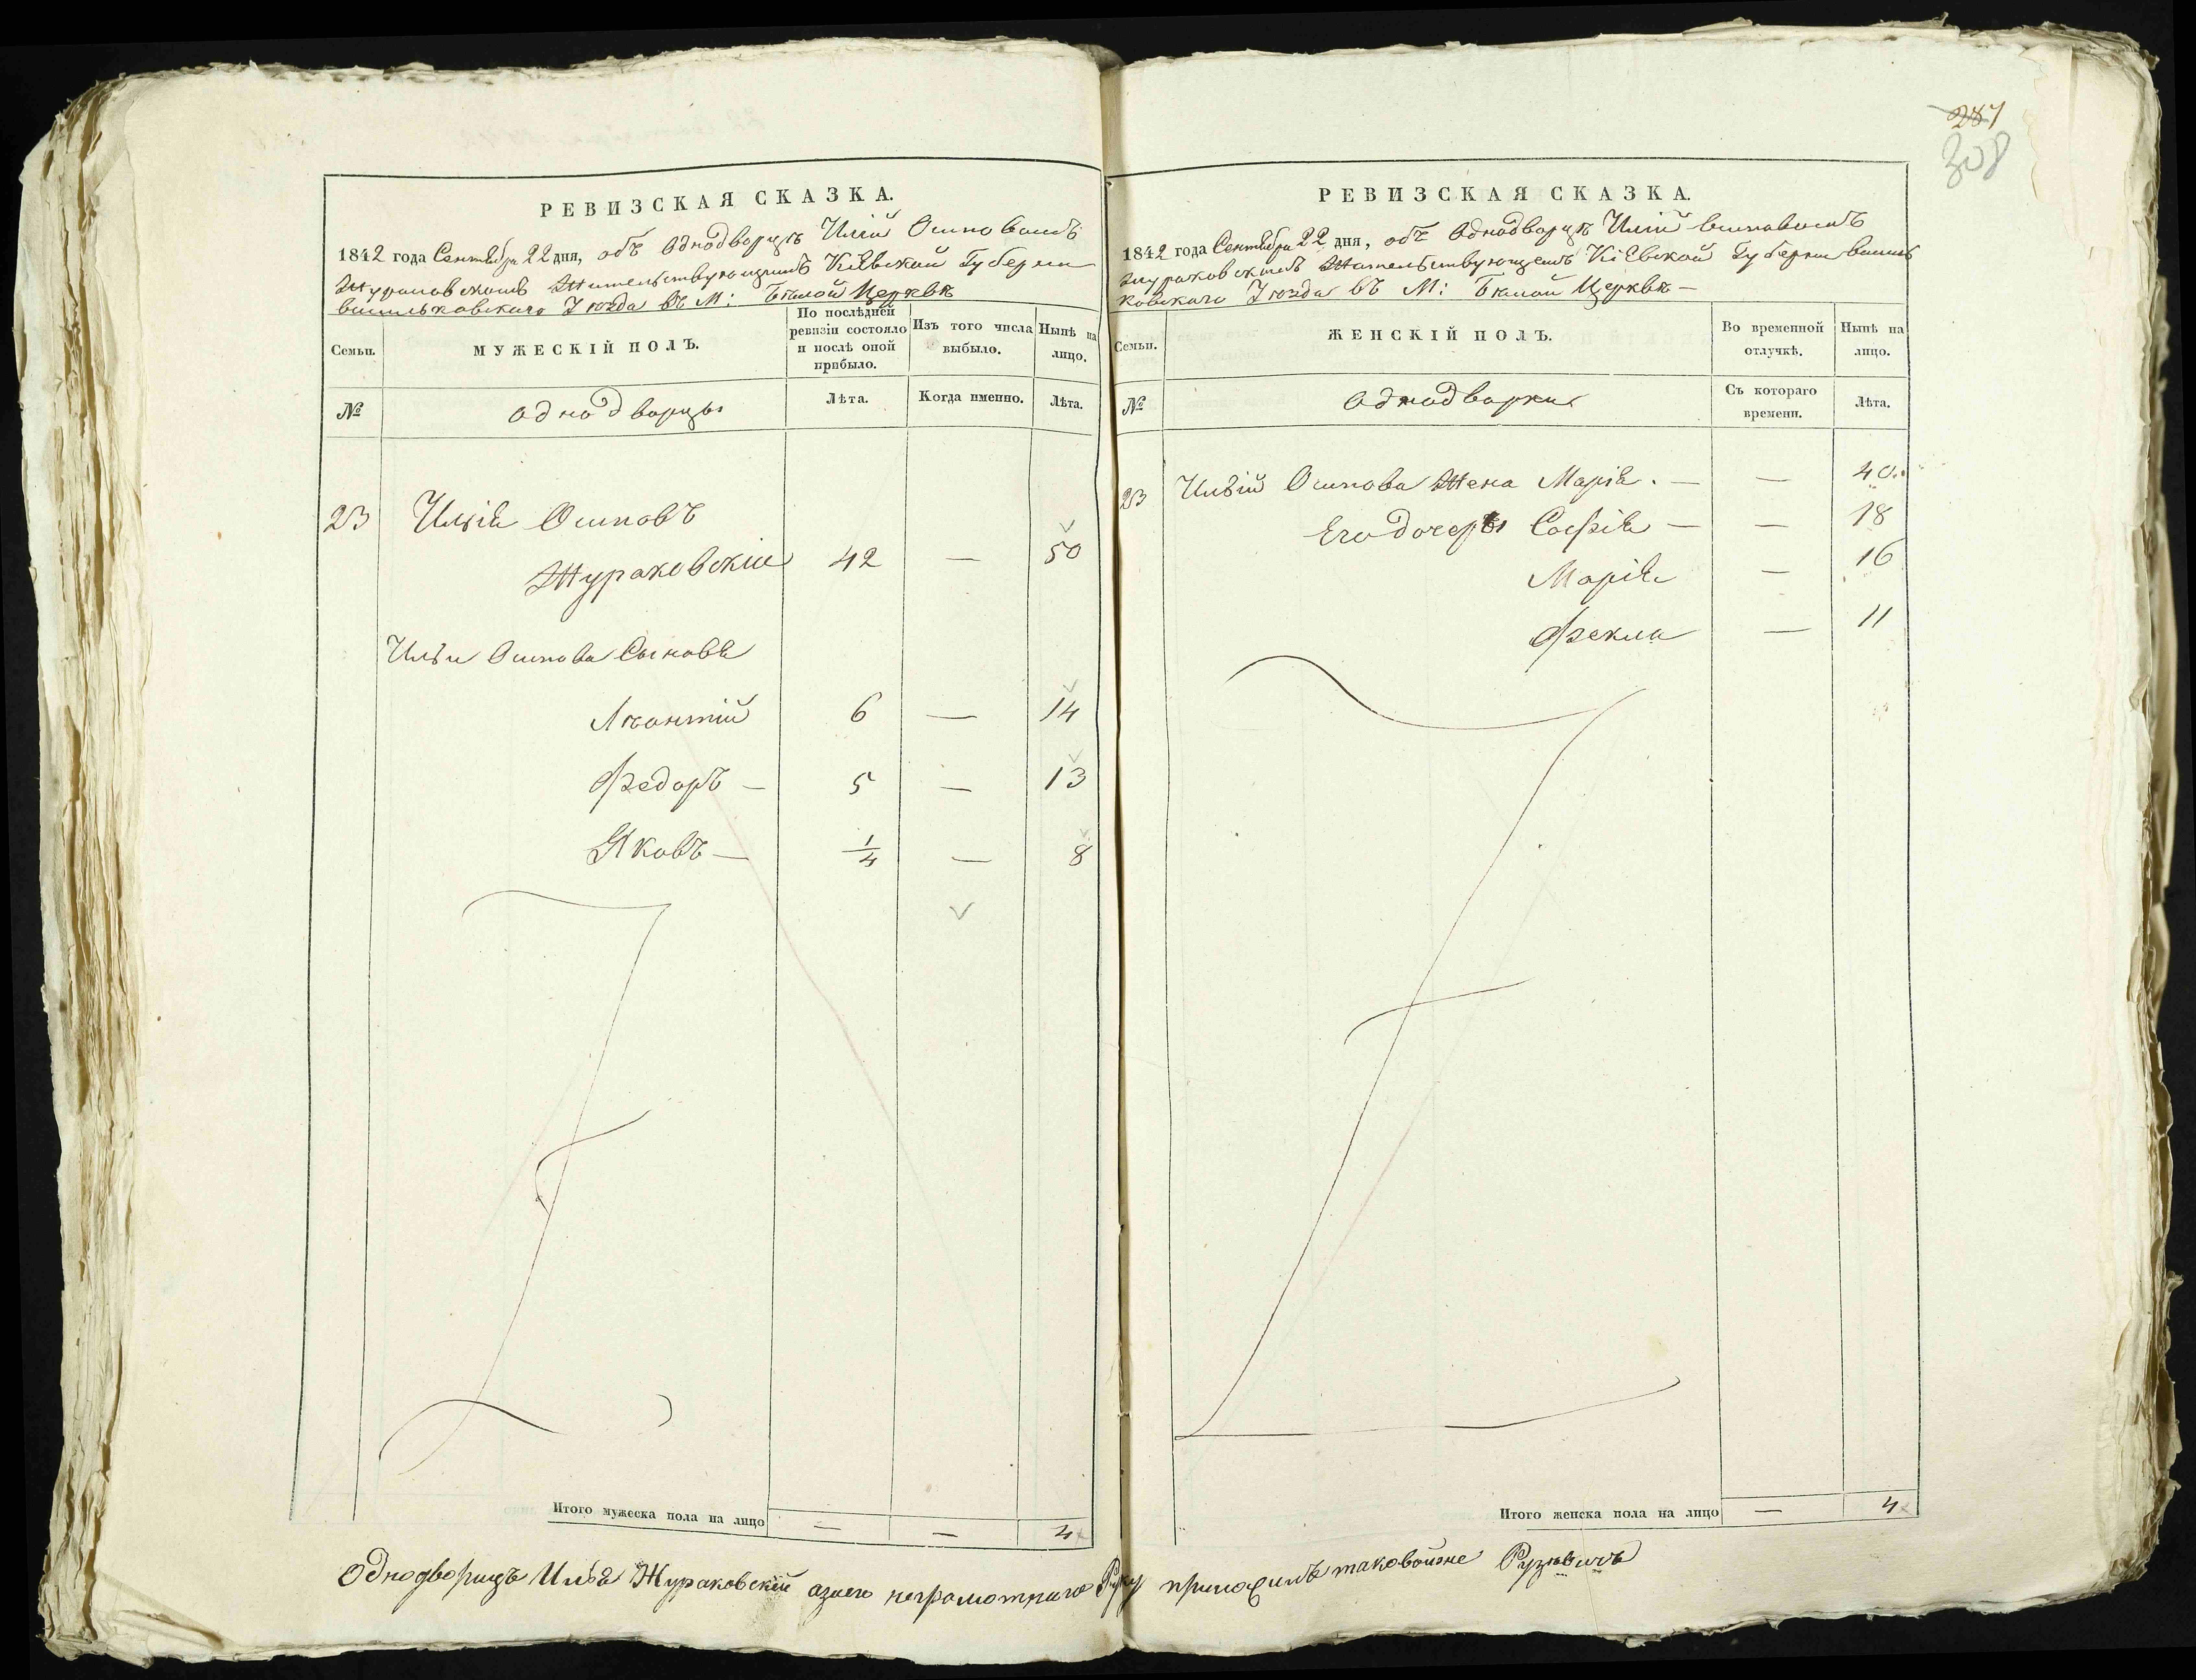 287
308
РЕВИЗСКАЯ СКАЗКА.
1842 года Сентября 22 дня, объ Однодворцѣ Иліи Осиповомъ
Жураковскомъ Жительствующимъ Кіевской Губерніи
Васильковскаго Уѣзда въ М: Бѣлой Церквѣ
Семьи.
МУЖЕСКІЙ ПОЛЪ.
По послѣдней ревизіи состояло и послѣ оной прибыло.
Изъ того числа выбыло.
Нынѣ на лицо.
№
Однодворцы
Лѣта.
Когда именно.
Лѣта.
23 Илія Осиповъ
Жураковскій 42 — 50
Ильи Осипова Сыновья
Леонтій 6 — 14
Федоръ — 5 — 13
Яковъ — 1/4 — 8
Итого мужеска пола на лицо — — 4
РЕВИЗСКАЯ СКАЗКА.
1842 года Сентября 22 дня, объ Однодворцѣ Иліи Осиповомъ
Жураковскомъ Жительствующемъ Кіевской Губерніи Василь
ковскаго Уѣзда въ М: Бѣлой Церквѣ —
Семьи.
ЖЕНСКІЙ ПОЛЪ.
Во временной отлучкѣ.
Нынѣ на лицо.
№
Однодворки
Съ котораго времени.
Лѣта.
23 Ильій Осипова Жена Марія . — — 40
Его дочеры Софія — — 18
Марія — 16
Фекла — 11
Итого женска пола на лицо — 4
Однодворецъ Илья Жураковскій а за его неграмотнаго Руку приложилъ таковойже